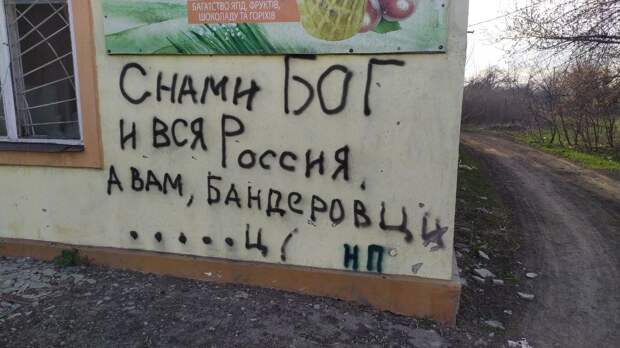 БАГАТСТВО ЯГІД, ФРУКТІВ,
ШОКОЛАДУ ТА ГОРІХІВ
С НАМИ БОГ
И ВСЯ РОССИЯ.
А ВАМ, БАНДЕРОВЦЫ
.....Ц!
НП